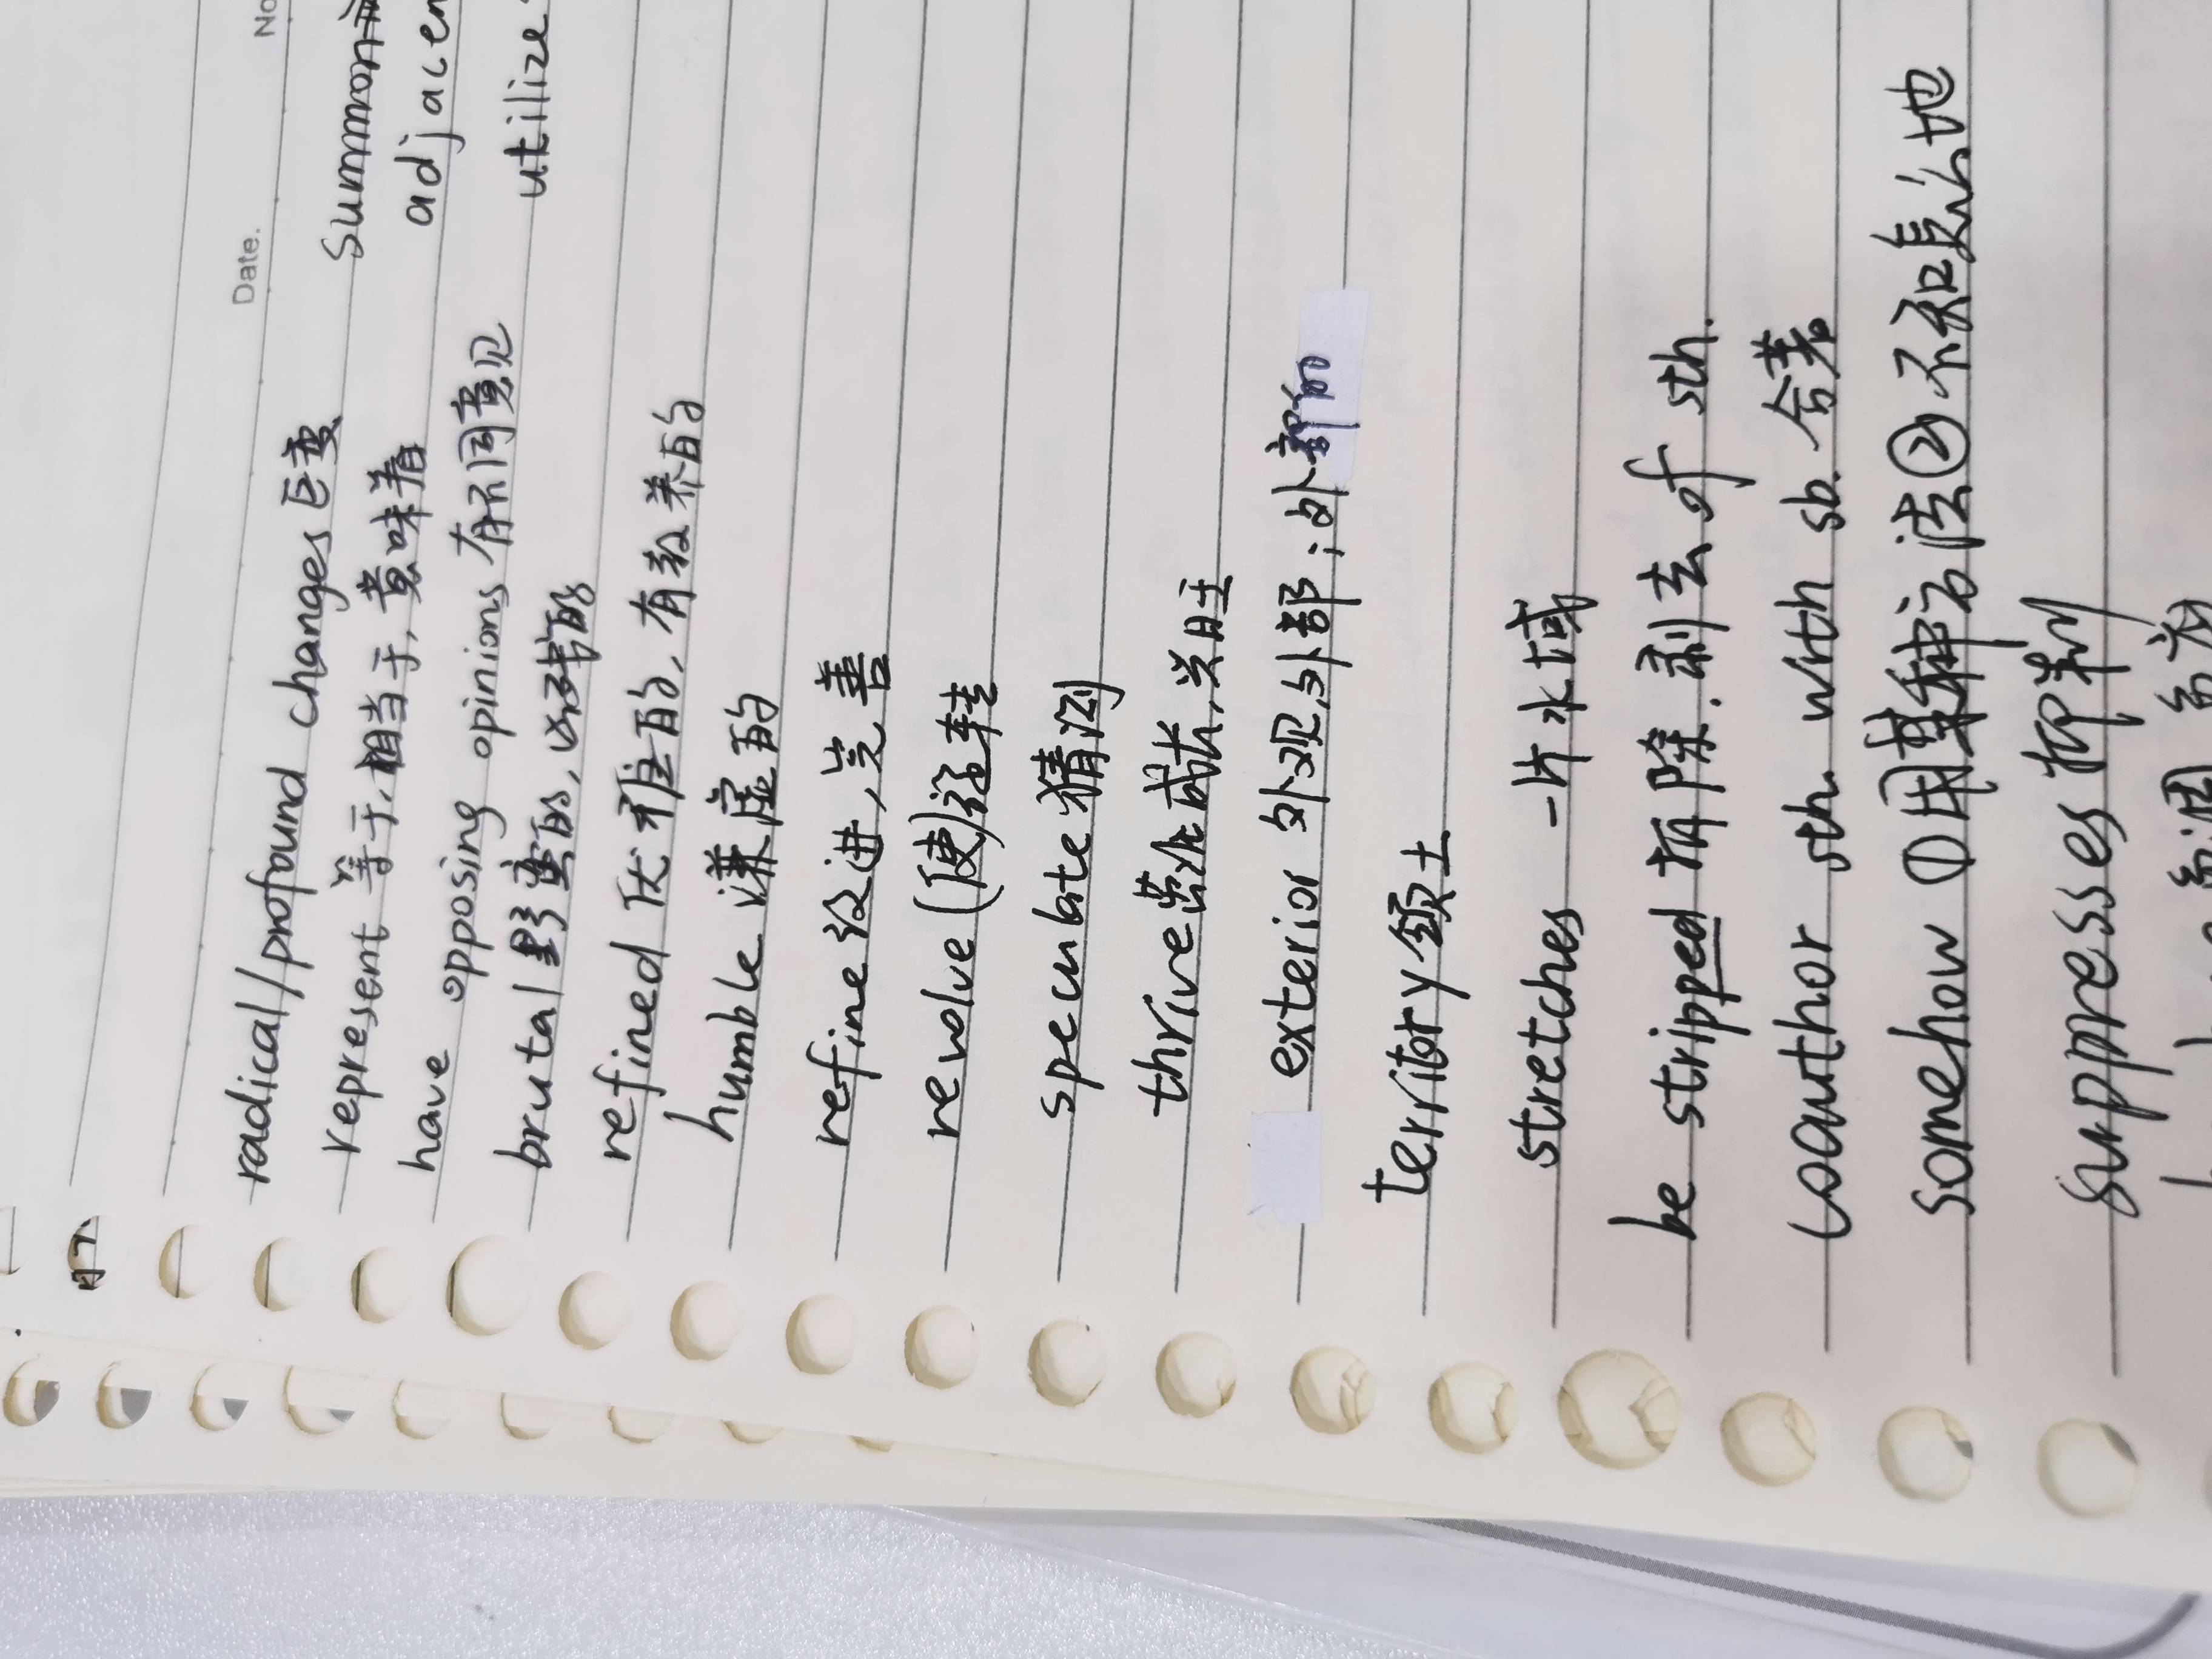 Date. No
radical/profound changes 巨变 summon
represent 等于,相当于,意味着 adjacen
have opposing opinions 有不同意见 utilize
brutal 野蛮的,
refined 优雅的,有教养的
humble 谦虚的
refine 改进,完善
revolve (使)旋转
speculate 猜测
thrive 茁壮成长,兴旺
exterior 外观,外部;外部的
territory 领土
stretches 一片水域
be stripped 剥去 of sth.
coauthor sth. with sb. 合著
somehow ①用某种方法②不知怎么地
suppresses 抑制